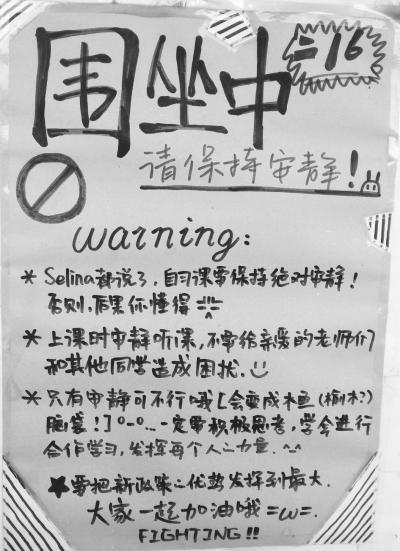 围坐中
=16
请保持安静!
warning:
* Selina都说了,自习课要保持绝对安静!
否则,后果你懂得
* 上课时安静听课,不要给亲爱的老师们
和其他同学造成困扰.
* 只有安静可不行哦[会变成木鱼(榆木?)
脑袋!]o-o...一定要积极思考,学会进行
合作学习,发挥每个人的力量.^-^
★要把新政策的优势发挥到最大.
大家一起加油哦=ω=.
FIGHTING!!